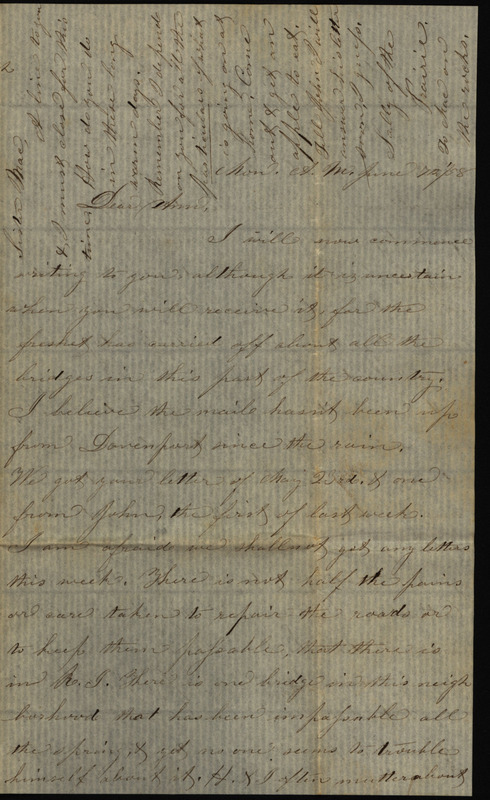 Mon. June 7th/58
Dear Ann,
I will now commence
writing to you, although it is uncertain
when you will receive it, for the
freshet has carried off about all the
bridges in this part of the country.
I believe the mail hasn't been up
from Davenport since the rain.
We got your letter of May 23rd. & one
from John, the first of last week.
I am afraid we shall not get any letters
this week. There is not half the pains
or care taken to repair the roads or
to keep them passable, that there is
in R. I. There is one bridge in this neigh
borhood that has been impassable all
the spring, & yet no one seems to trouble
himself about it. H. & I often mutter about
2
Sister Mae
I
to you
& I must close for this
time. How do you do
in these long
warm days.
Remember I depend
on you for all the
particulars of what
is going on at
home. Come
out & get an
apple to eat.
Tell John I will
answer his letter
soon, I guess.
Sally of the
Prairie.
To Mae on
the rocks.